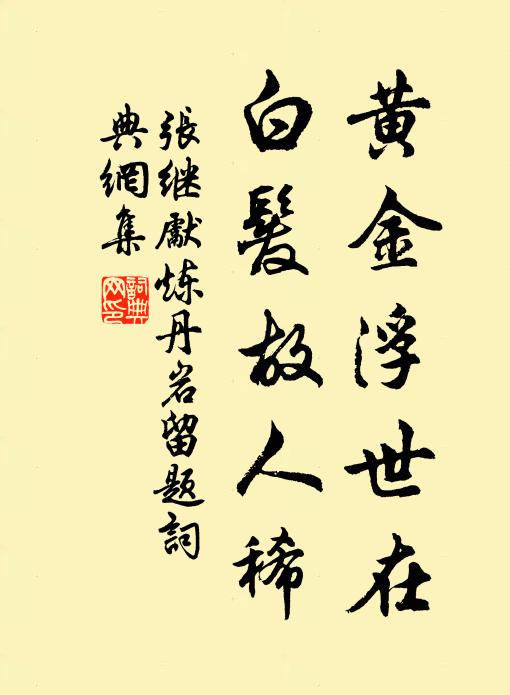 黄金浮世在
白髮故人稀
張继獻炼丹岩留题詞
典網集
詞典
网印